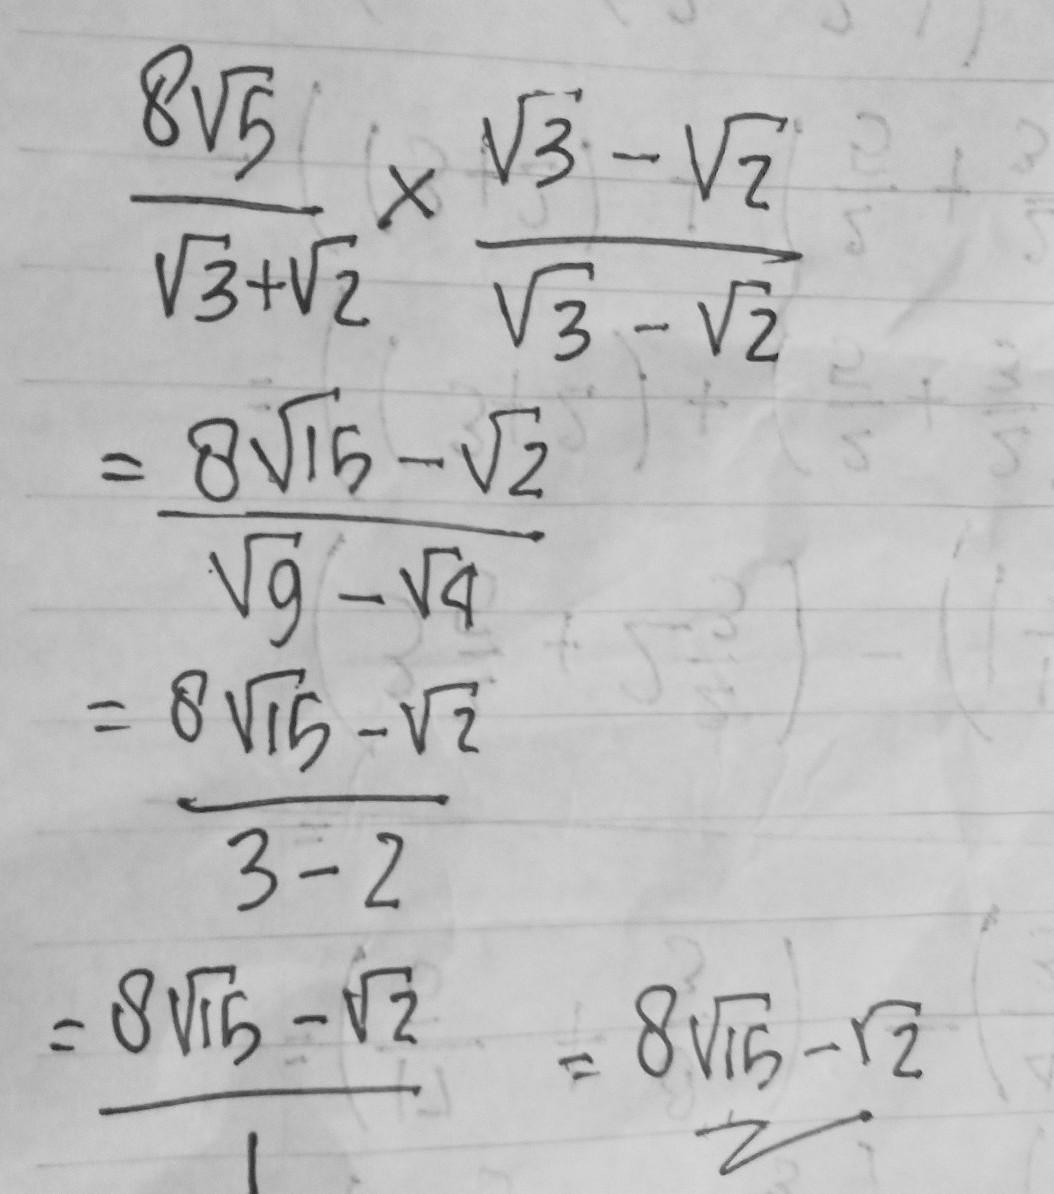 8√5 / √3+√2 × √3 - √2 / √3 - √2
= 8√15 - √2 / √9 - √4
= 8√15 - √2 / 3 - 2
= 8√15 - √2 / 1 = 8√15 - √2